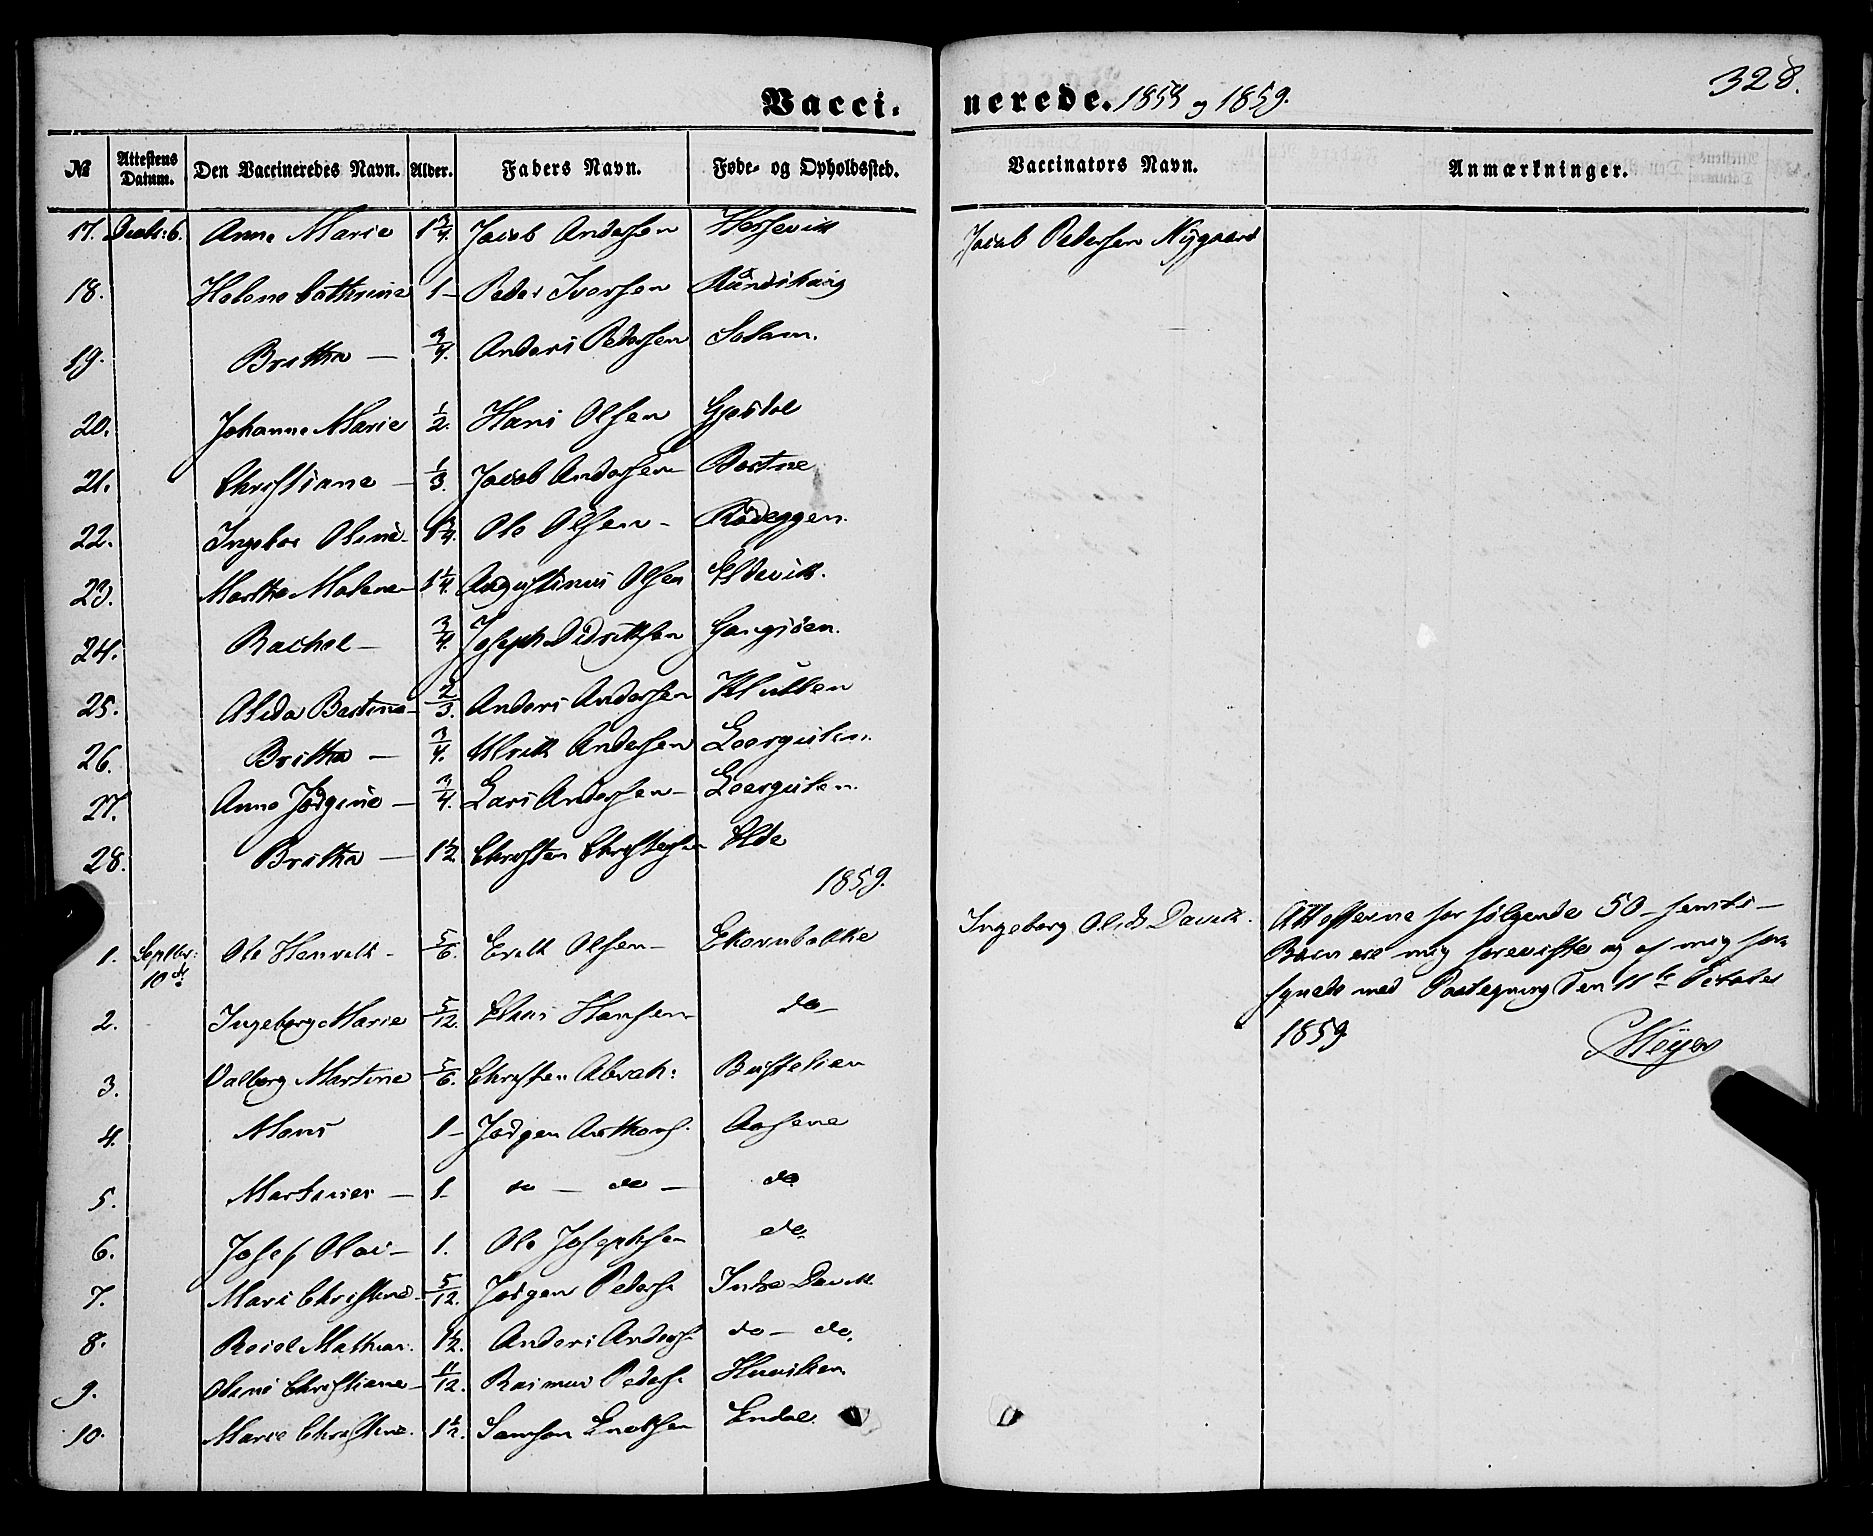 328.
Vacci- nerede. 1858 og 1859.
№ Attestens Datum. Den Vaccineredes Navn. Alder. Faders Navn. Føde- og Opholdssted. Vaccinators Navn. Anmærkninger.
17. Decbr: 6. Anne Marie 1 3/4. Jacob Andersen Hessevik Jacob Pedersen Nygaard
18. Helene Cathrine 1 - Peder Iversen
19. Brithe — 3/4. Anders Pedersen Solem.
20. Johanne Marie 1/2. Hans Olsen Gjesdal
21. Christiane — 1/3. Jacob Andersen Bortne
22. Ingebor Oline - 1 3/4. Ole Olsen - Rødeggen.
23. Marthe Malene - 1 1/4. Augustinus Olsen Eldevik.
24. Rachel — 3/4. Joseph Didriksen Gangsøen.
25. Alida Bertine - 2/3. Anders Andersen
26. Brithe — 3/4. Ulrik Andersen Leergulen.
27. Anne Jørgine — 3/4. Lars Andersen - Leergulen.
28. Brithe — 1 1/2 Christen Christens: Elde
1859.
1. Septbr: 10de Ole Henrik - 5/6. Erik Olsen - Ekornbakke Ingeborg Olsd. Davik. Attesterne for følgende 50 - femti -
Børn ere mig foreviste og af mig for-
synede med Paategning den 11te October
2. Ingeborg Marie 5/12. Elias Hansen do -
1859. Meyer
3. Valborg Martine 5/6. Christen Abrah: Bustelien
4. Mons 1 - Jørgen Anthons. Aasene
5. Martinus — 1 - do — do — do
6. Josef Olai - 1. Ole Josephsen do.
7. Mari Christine - 5/12. Jørgen Peders. Indre Davik.
8. 1 1/2. Anders Anders. do - do.
9. Oline Christiane - 11/12. Rasmus Peders.
10. Marie Christine. 1 1/2. Samson Knudsen Endal.